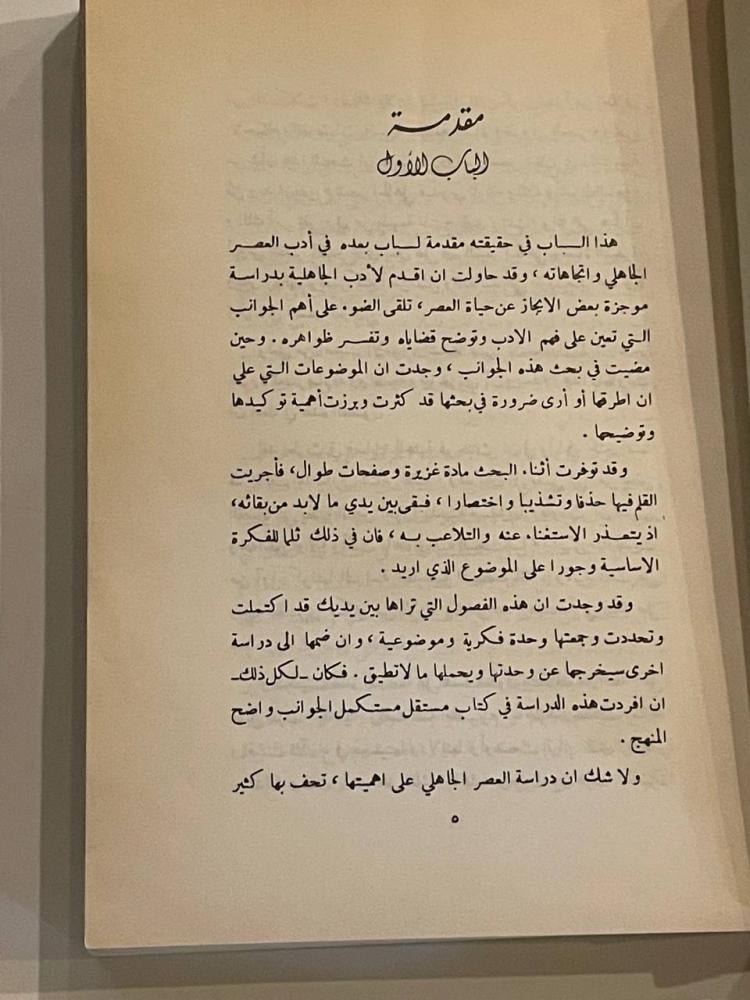 مقدمة
الباب الأول
هذا البـاب في حقيقته مقدمة لـباب بعده في أدب العصر
الجاهلي واتجاهاته ، وقد حاولت ان اقدم لأدب الجاهلية بدراسة
موجزة بعض الايجاز عن حياة العصر، تلقى الضوء على أهم الجوانب
التي تعين على فهم الادب وتوضح قضاياه وتفسر ظواهره . وحين
مضيت في بحث هذه الجوانب ، وجدت ان الموضوعات التي علي
ان اطرقها أو أرى ضرورة في بحثها قد كثرت وبرزت أهمية توكيدها
وتوضيحها .
وقد توفرت أثناء البحث مادة غزيرة وصفحات طوال، فأجريت
القلم فيها حذفا وتشذيبا واختصارا ، فبقى بين يدي ما لابد من بقائه،
اذ يتعذر الاستغناء عنه والتلاعب به ، فان في ذلك ثلما للفكرة
الاساسية وجورا على الموضوع الذي اريد .
وقد وجدت ان هذه الفصول التي تراها بين يديك قد اكتملت
وتحددت وجمعتها وحدة فكرية وموضوعية ، وان ضمها الى دراسة
اخرى سيخرجها عن وحدتها ويحملها ما لاتطيق . فكان ـ لكل ذلك ـ
ان افردت هذه الدراسة في كتاب مستقل مستكمل الجوانب واضح
المنهج .
ولا شك ان دراسة العصر الجاهلي على اهميتها ، تحف بها كثير
٥